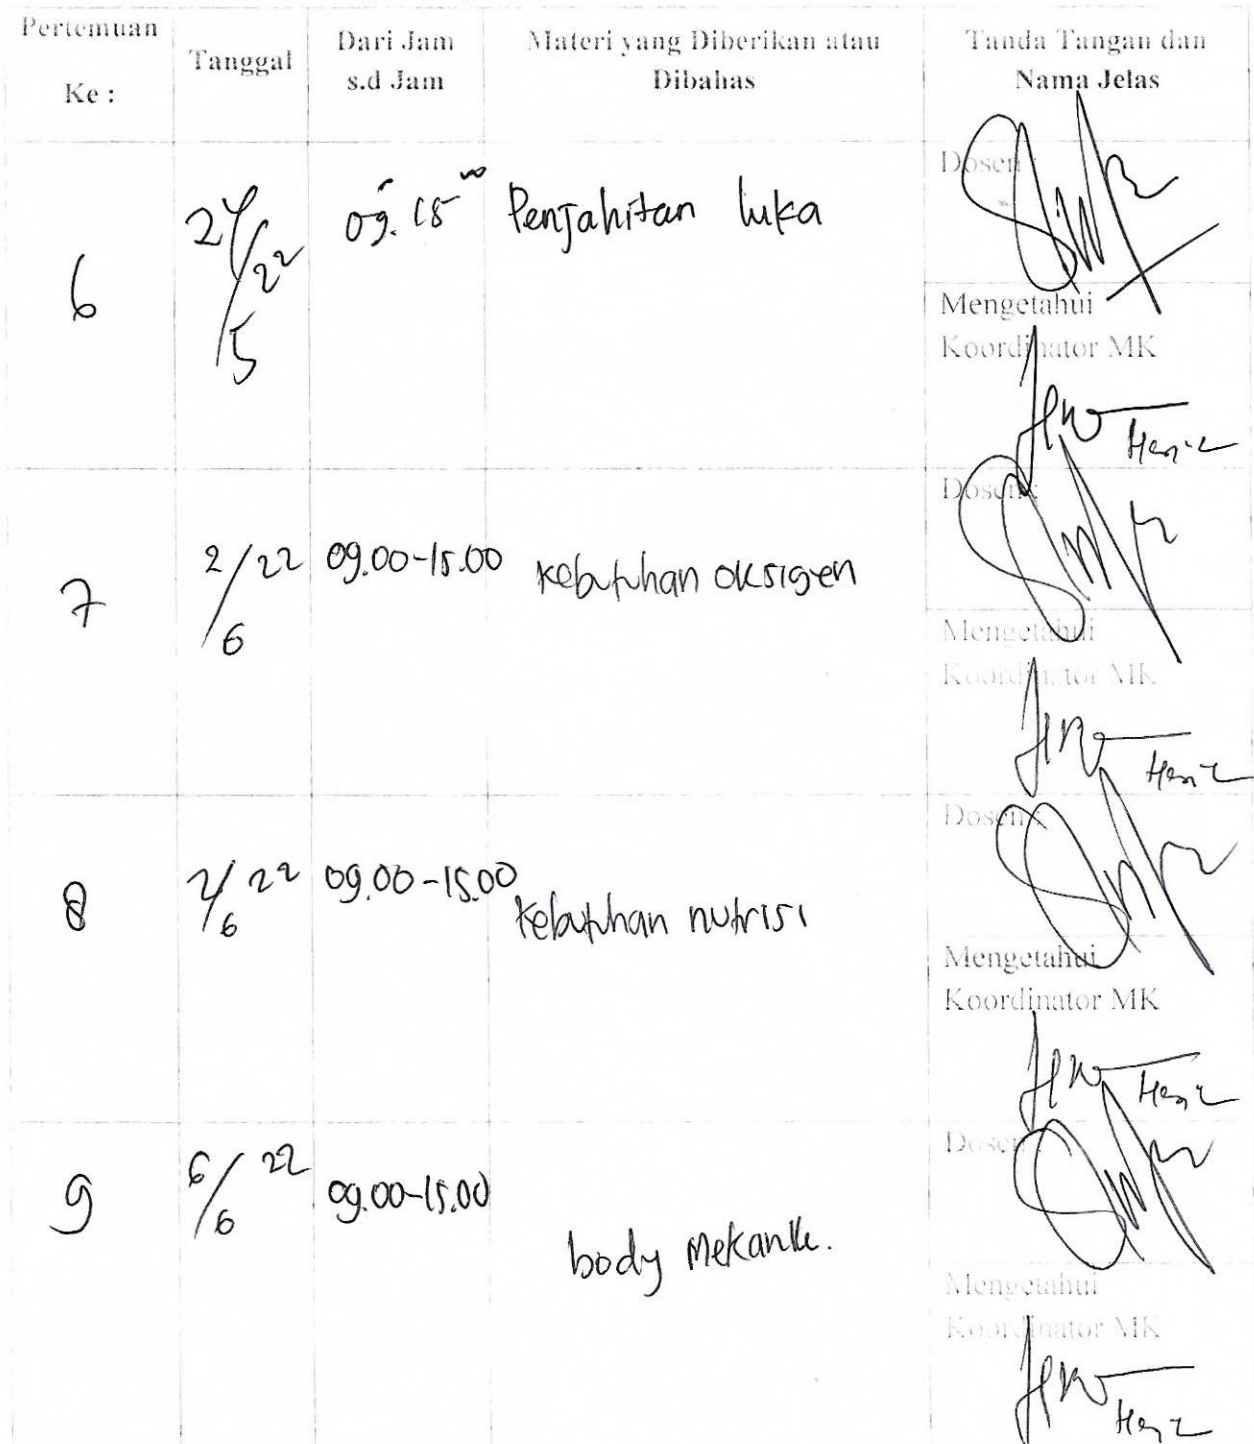 Pertemuan
Ke :
Tanggal
Dari Jam
s.d Jam
Materi yang Diberikan atau
Dibahas
Tanda Tangan dan
Nama Jelas
6
09.
Penjahitan luka
Dosen :
Mengetahui
Koordinator MK
7
2/6 22
09.00-15.00
kebutuhan oksigen
Dosen :
Mengetahui
Koordinator MK
8
2/6 22
09.00-15.00
kebutuhan nutrisi
Dosen :
Mengetahui
Koordinator MK
9
6/6 22
09.00-15.00
body mekanik.
Dosen :
Mengetahui
Koordinator MK